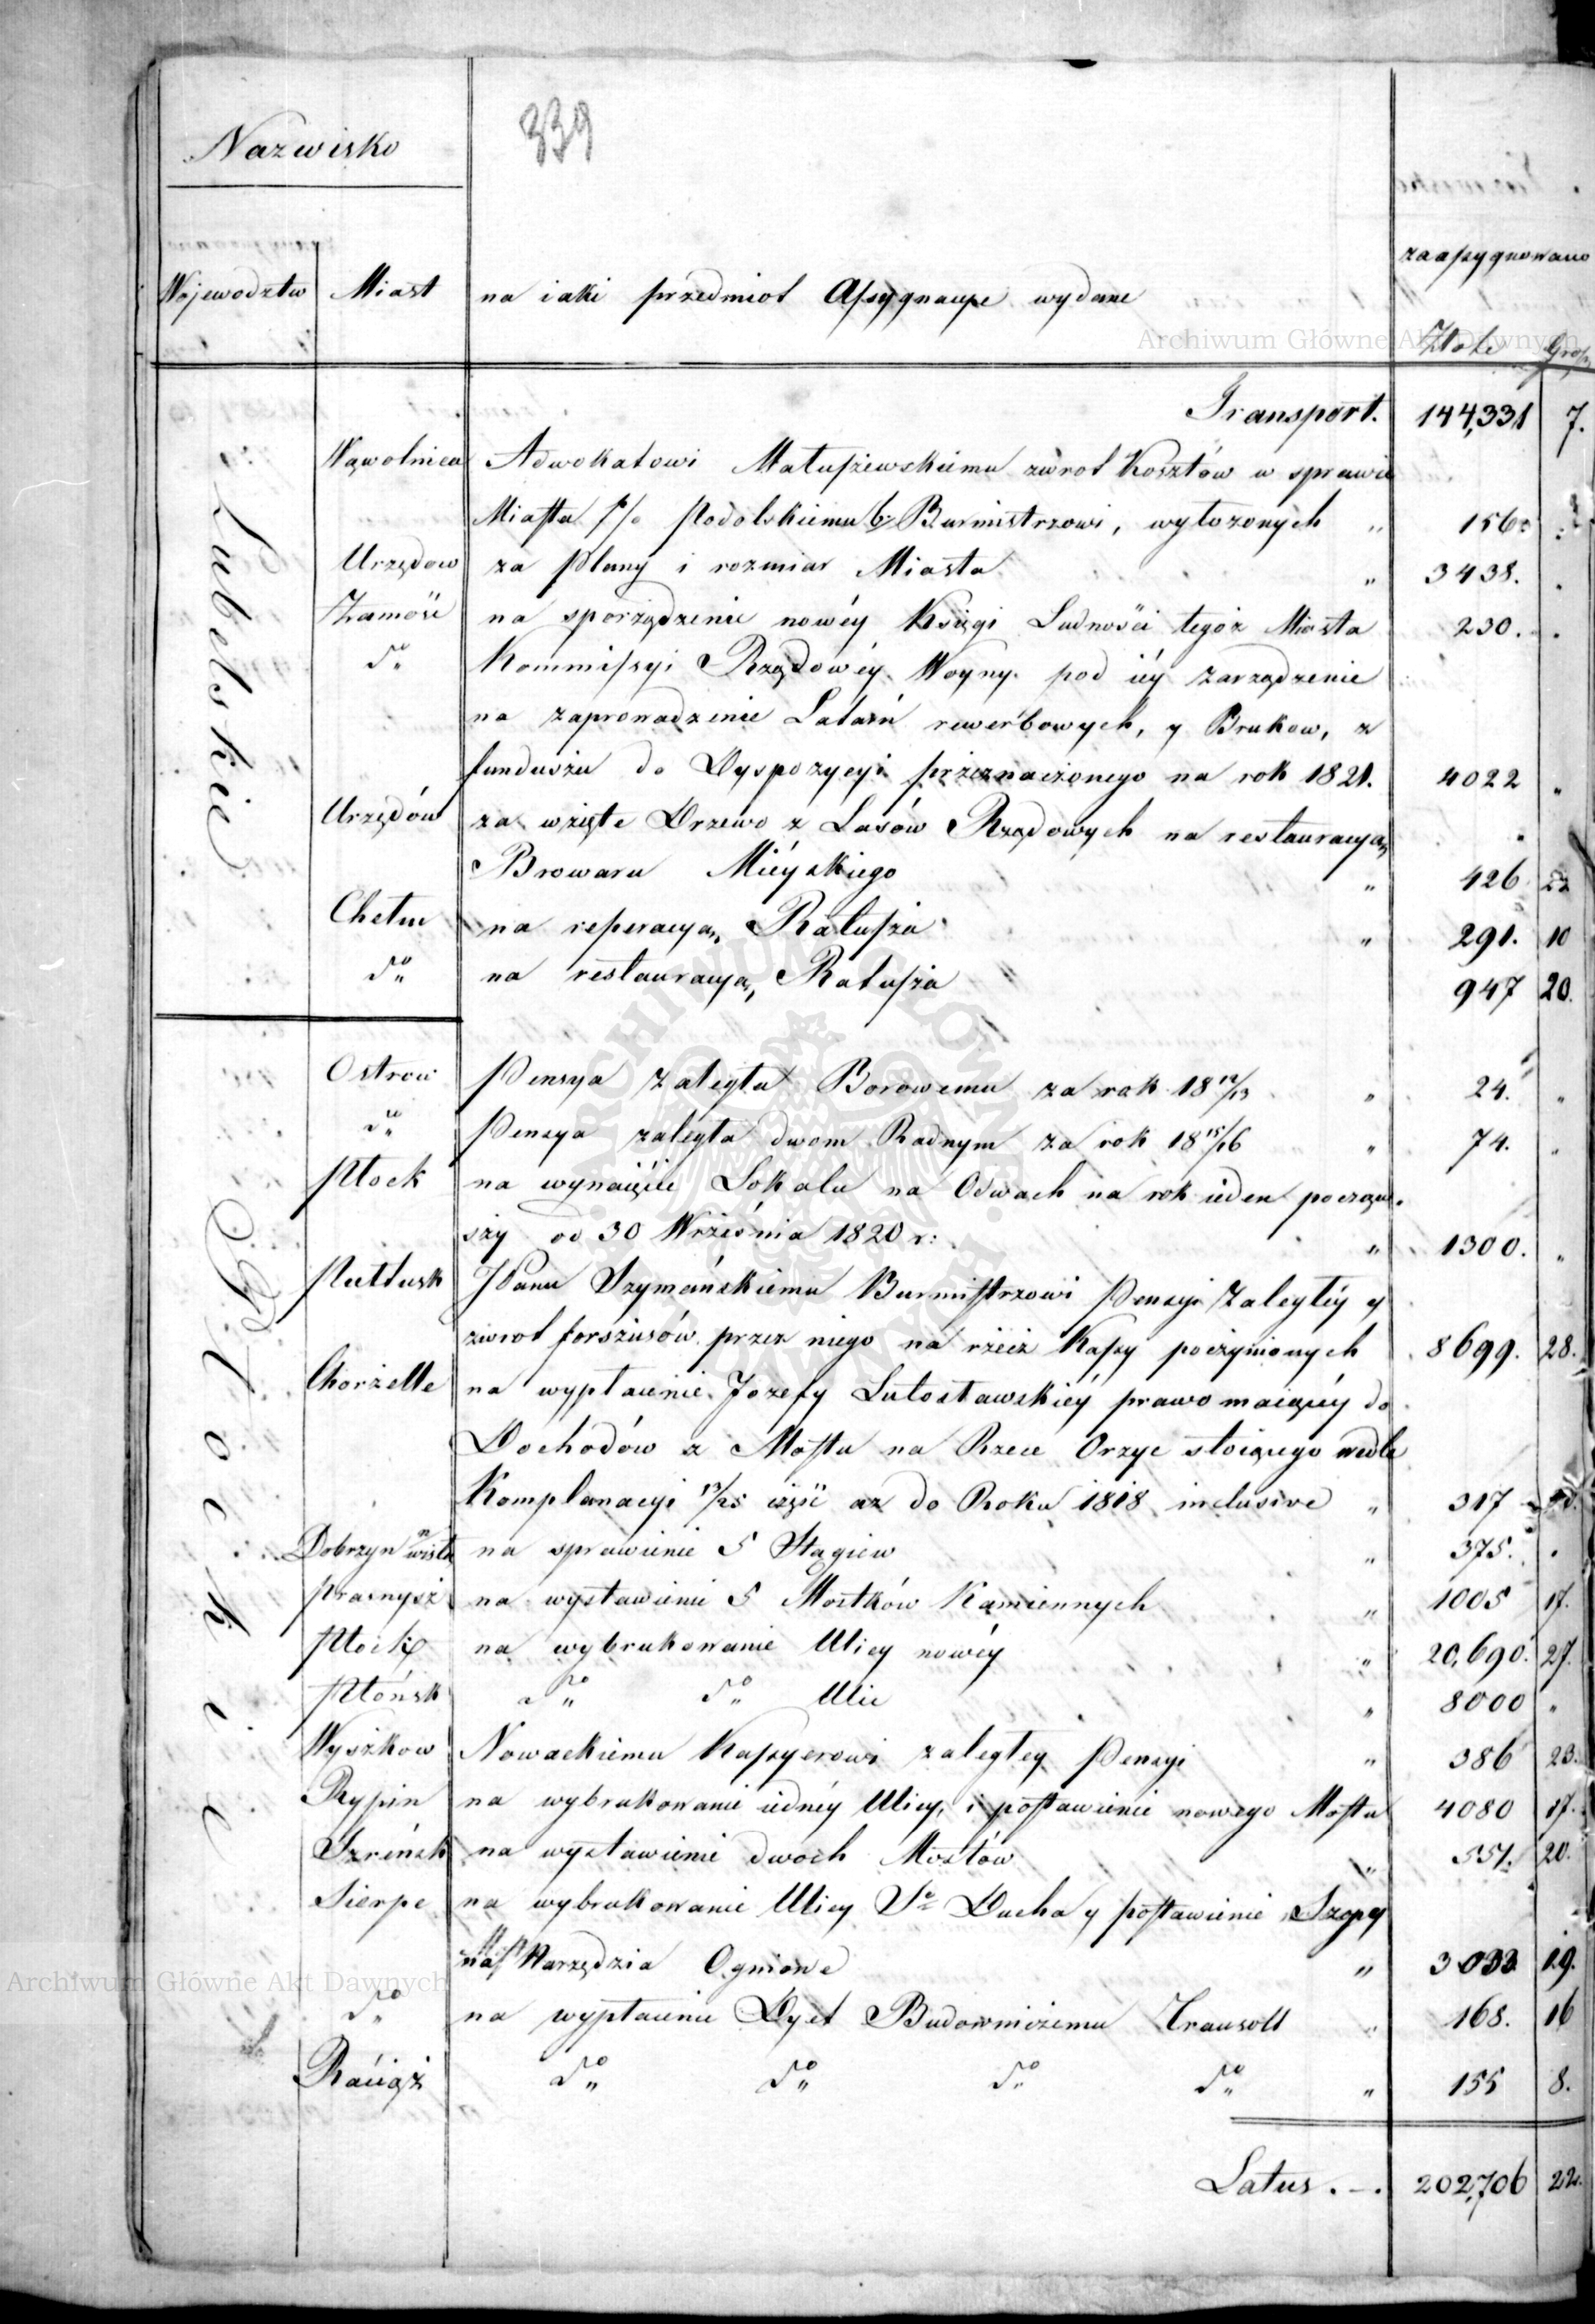 339
Nazwisko
Wojewodztw Miast na iaki przedmiot Assygnacye wydane zaassygnowano
Złote Grosz
Transport. 144,331 7.
Lubelskie
Wąwolnica Adwokatowi Matuszewskiemu zwrot Kosztów w sprawie
Miasta p/o Podolskiemu b: Burmistrzowi, wyłozonych " 156
Urzędow za Plany i rozmiar Miasta " 3438. .
Zamość na sporządzenie nowéy Księgi Ludności tegoż Miasta 230. .
do Kommissyi Rządowéy Woyny pod iéy zarządzenie
na zaprowadzenie Latarń rewerbowych, y Brukow, z
funduszu do Dyspozycyi przeznaczonego na rok 1821. 4022 "
Urzędów za wzięte Drzewo z Lasów Rządowych na restauracyą
Browaru Mieyskiego " 426 22
Chełm na reperacyą Ratusza " 291. 10
do na restauracyą Ratusza 947 20.
Płockie
Ostrow Pensya zaległa Borowemu za rok 18 12/13 " 24. "
do Pensya zaległa dwom Radnym za rok 18 15/16 " 74. "
Płock na wynaięcie Lokalu na Odwach na rok ieden począw.
szy od 30 Września 1820 r: " 1300. "
Pułtusk JPanu Szymańskiemu Burmistrzowi Pensyi zaległéy y
zwrot forszusów przez niego na rzecz Kassy poczynionych 8699. 28.
Chorzelle na wypłacenie Jozefy Lutosławskiéy prawo maiącéy do
Dochodów z Mostu na Rzece Orzyc stoiącego wedle
Komplanacyi az do Roku 1818 inclusive " 317
Dobrzyn n wisłą na sprawienie 5 Stągiew " 375. .
Prasnysz na wystawienie 5 Mostków Kamiennych " 1005 17.
Płock na wybrukowanie Ulicy nowéy " 20,690. 27.
Płońsk do do Ulic " 8000 "
Wyszkow Nowackiemu Kassyerowi zaległey Pensyi " 386 23.
Rypin na wybrukowanie iednéy Ulicy, i postawienie nowego Mostu 4080 17.
Szreńsk na wystawienie dwoch Mostów " 551. 20.
Sierpc na wybrukowanie Ulicy So Ducha y postawienie Szopy
na Narzędzia Ogniowe " 3033 19.
do na wypłacenie Dyet Budowniczemu Trausolt " 168. 16
Raciąż do do do do " 155 8.
Latus . - . 202,706 22.
Archiwum Główne Akt Dawnych
Archiwum Główne Akt Dawnych